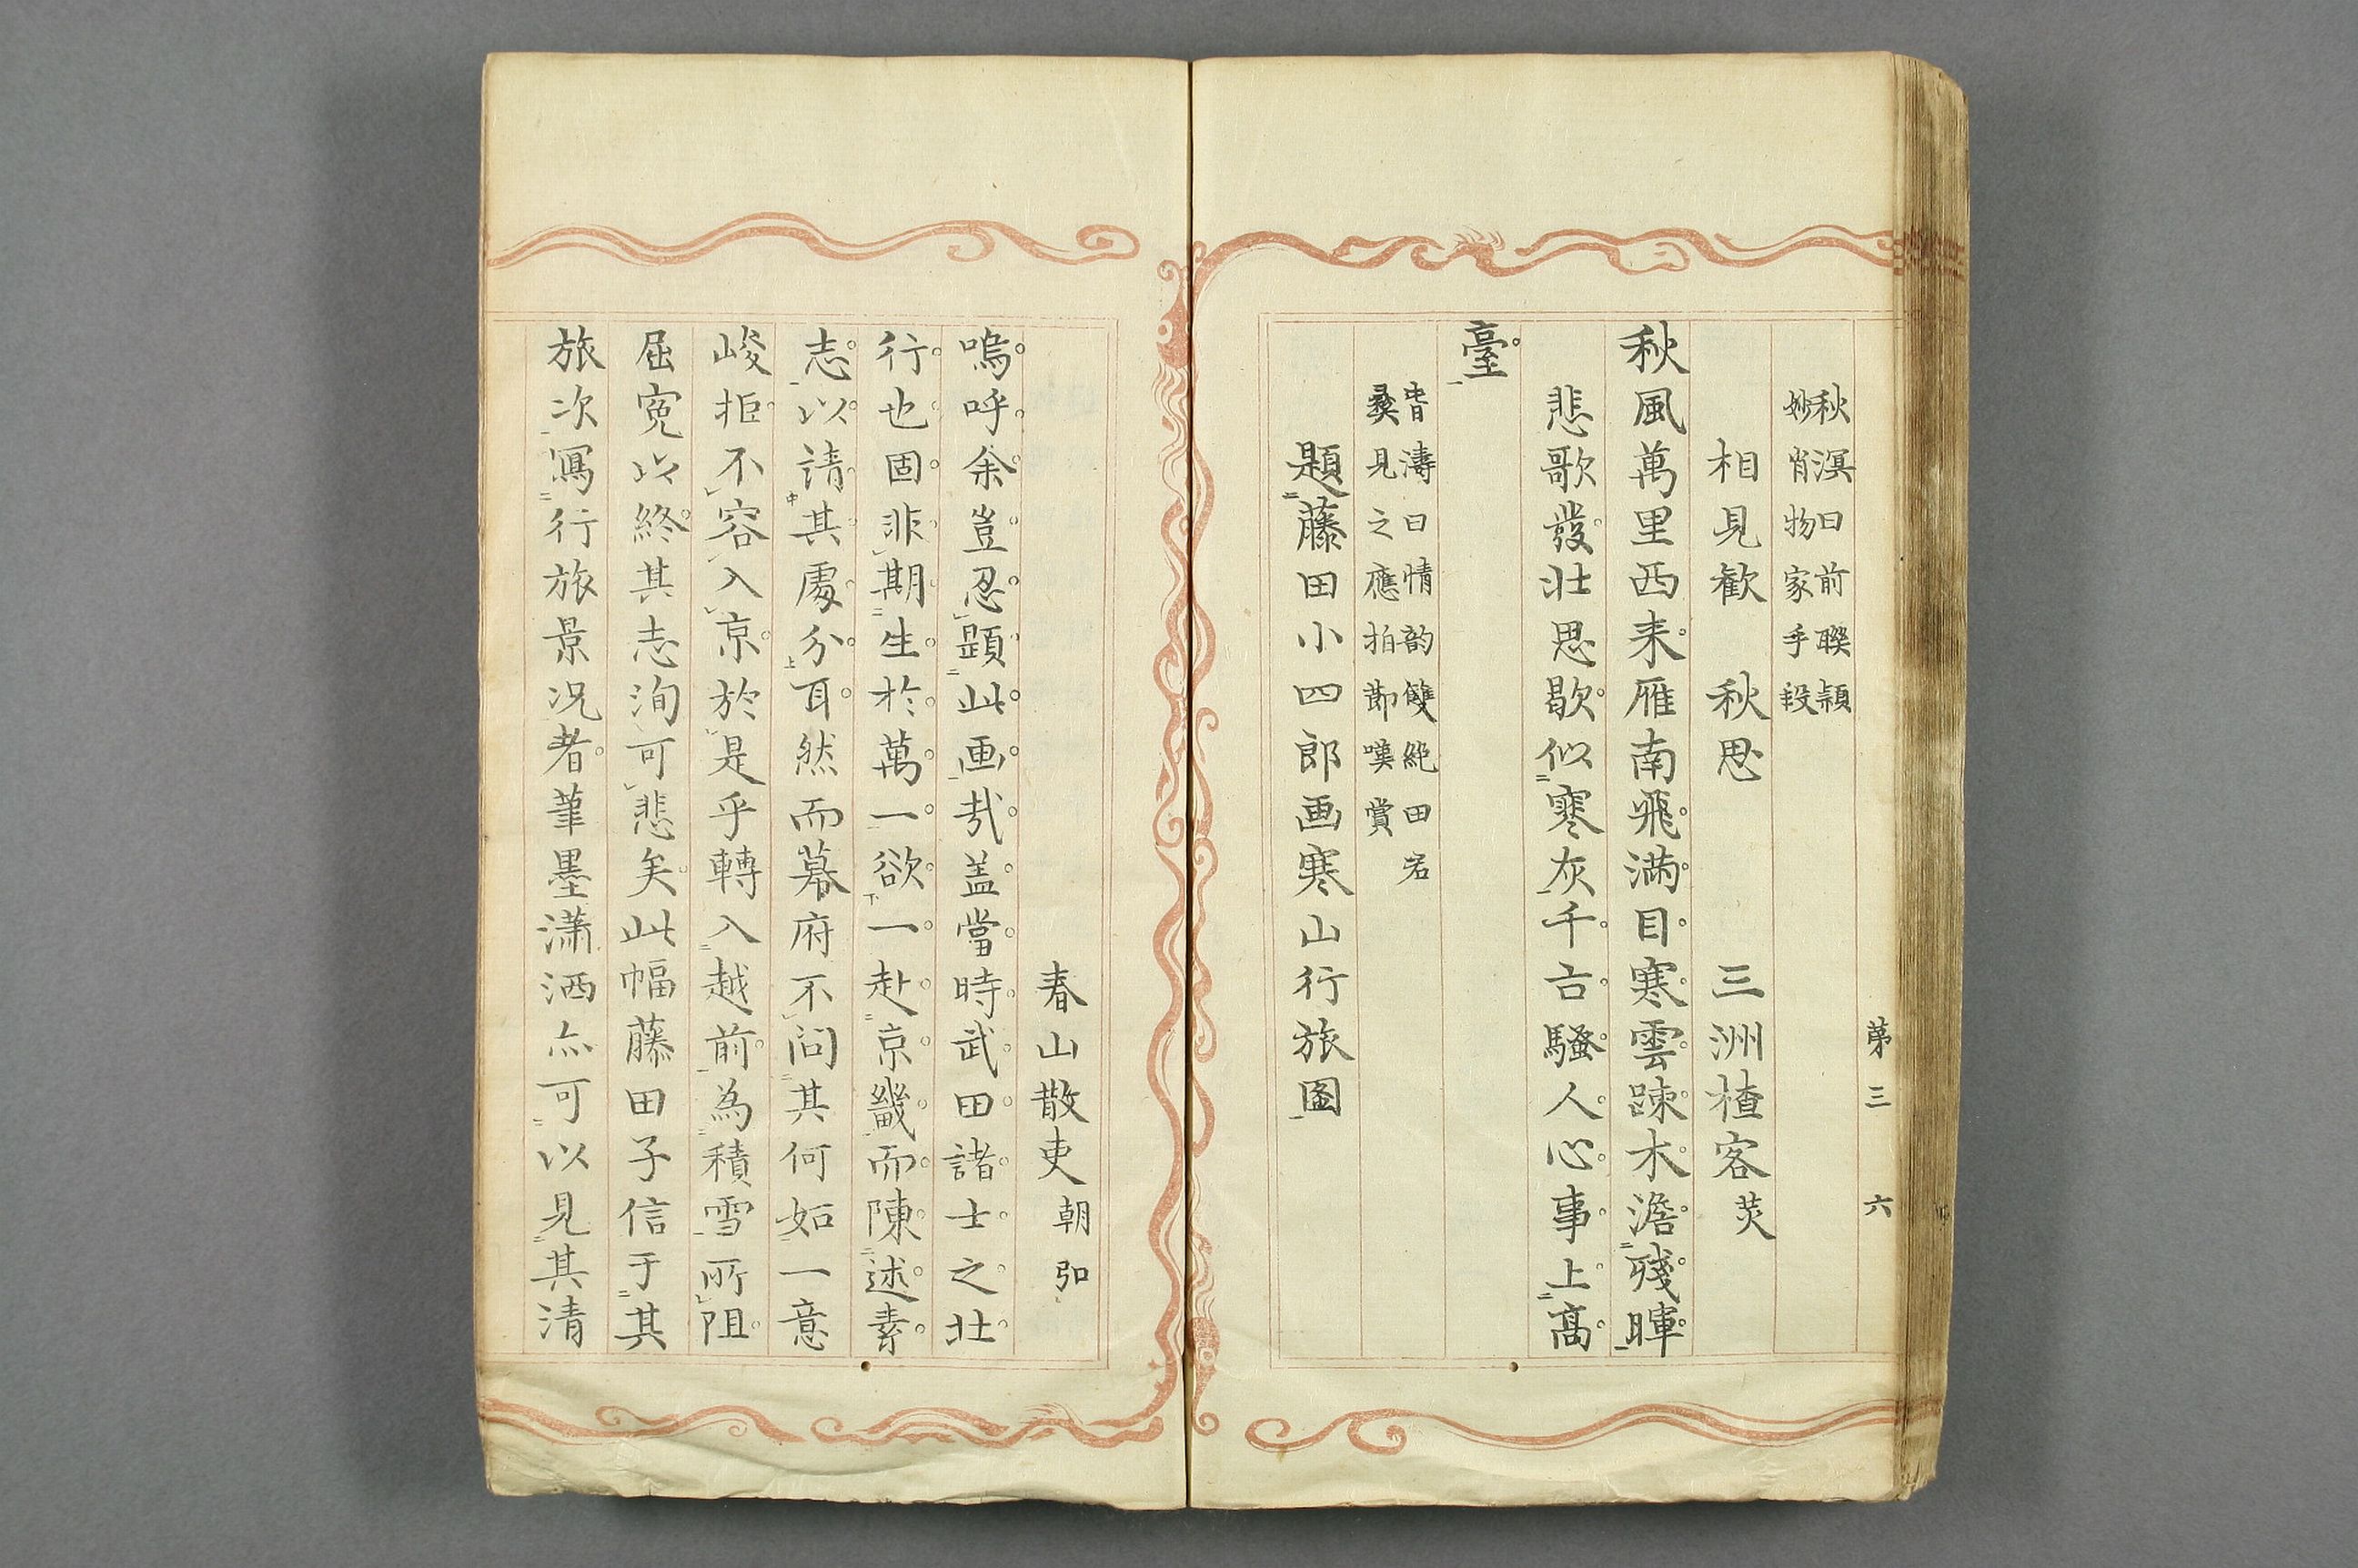 第三 六
秋溟曰前聯穎
妙肖物家手段
相見歓 秋思 三洲楂客
秋風萬里西来雁南飛満目寒雲踈木澹殘暉
悲歌發壮思歇似寒灰千古騷人心事上高
臺
濤曰情韵雙絶田君
見之應拍節嘆賞
題藤田小四郎画寒山行旅圖
春山散吏 朝弘
嗚呼余豈忍題此画哉盖當時武田諸士之壮
行也固非期生於萬一欲一赴京畿而陳述素
志以請其處分耳然而幕府不問其何如一意
峻拒不容入京於是乎轉入越前為積雪所阻
屈寃以終其志洵可悲矣此幅藤田子信于其
旅次寫行旅景况者筆墨瀟洒亦可以見其清